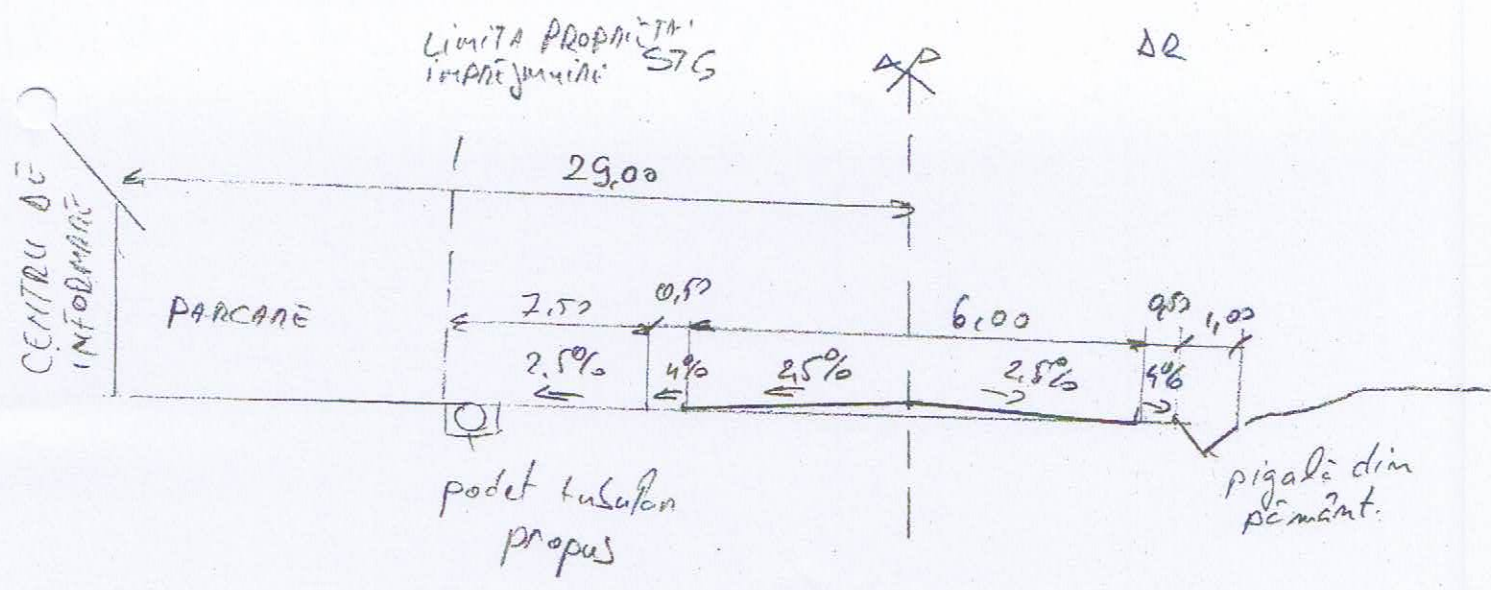 LIMITA PROPRIETĂȚII
STG
ÎMPREJMUIRE
AP
DR
29,00
CENTRU DE
INFORMARE
PARCARE
7,50
0,50
6,00
0,50
1,00
2.5%
4%
2,5%
2,5%
4%
podet tubular
propus
rigolă din
pământ.